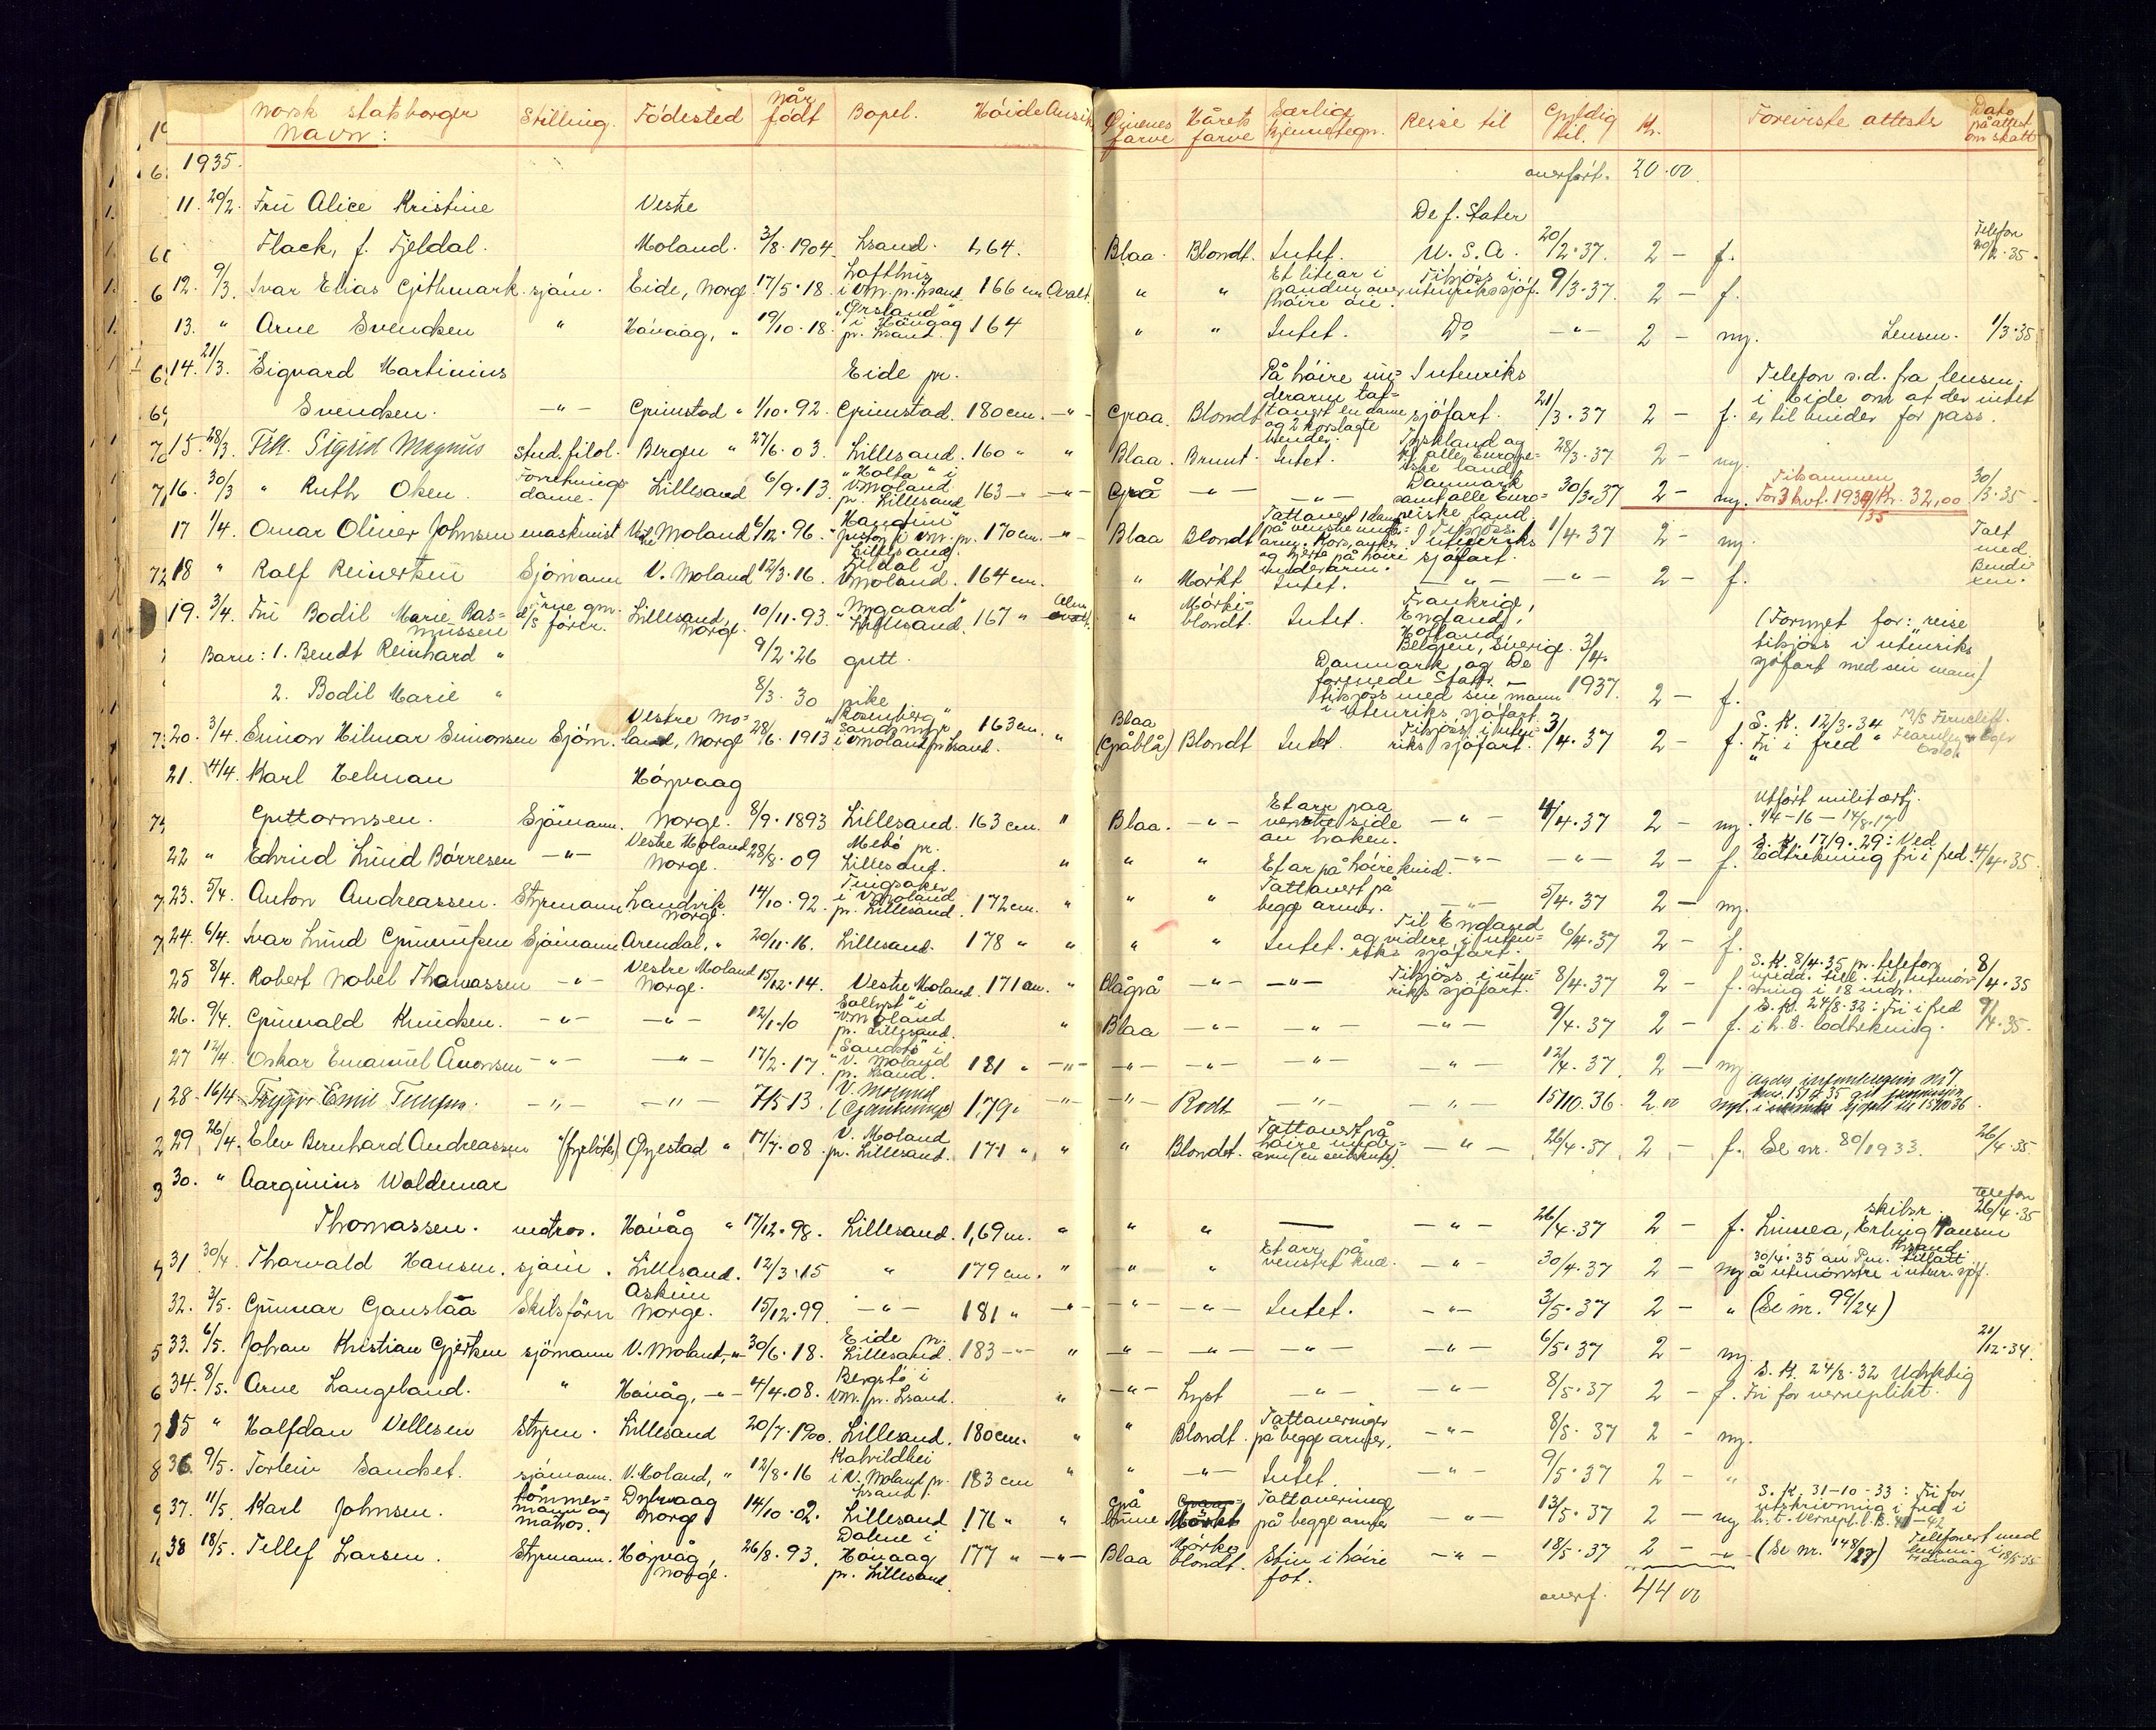 Norsk statsborger Stilling. Födested Når födt Bopel. Höide Ansik Öinenes farve Hårets farve Særlige kjennetegn. Reise til Gyldig til. Kr. Foreviste attester Dato på attest om skatt
Navn:
1935. overfört. 20.00
11. 20/2. Frü Alice Kristine Vestre De f. Stater
Flack, f. Fjeldal. Moland. 3/8.1904. Lsand. 1,64. Blaa. Blondt. Intet. U.S.A. 20/2.37. 2 - f. Telefon 20/2.35.
12. 9/3. Ivar Elias Githmark. sjöm. Eide, Norge 17/5.18. Lofthus i V.M. pr. Lsand. 166 cm Ovalt. " " Et lite ar i panden over höire öie. Tilsjöss i utenrikssjöf. 9/3.37. 2 - f.
13. " Arne Svendsen " Hövaag, " 19/10.18. "Ørsland" i Hövaag pr. Lsand. 164 " " Intet. Do - " - 2 - ny. Lensm. 1/3.35
14. 21/3. Sigvard Martinius Eide pr. På höire un= Intenriks Telefon s.d. fra lensm.
Svendsen. - " - Grimstad " 1/10.92. Grimstad. 180 cm. - " - Graa. Blondt derarm tat= tovert en dame og 2 korslagte hender. sjöfart. 21/3.37 2 - f. i Eide om at der intet er til hinder for pass.
15. 28/3. Frk. Sigrid Magnus stud. filol. Bergen " 27/6.03. Lillesand. 160 " " Blaa. Brunt. Intet. Tyskland og til alle Europe= iske land. 28/3.37. 2 - ny.
16. 30/3 " Ruth Olsen. Forretnings dame. Lillesand 6/9.13. "Holta" i V. Moland pr. Lillesand 163 - " - " - Grå - " - - " - Danmark samt alle Euro= peiske land. 30/3.37 2 - ny. Tilsammen For 3 kvt. 1934/35 Kr. 32,00 30/3.35
17 1/4. Omar Oliver Johnsen maskinist Vestre Moland 6/12.96. 170 cm. - " - Blaa Blondt Tattovert 1 dame på venstre under= arm. Kors, anker og hjerte på höire underarm. Tilsjöss i utenriks sjöfart. 1/4.37 2 - ny. Talt med Bendixen.
18 " Ralf Reinertsen Sjömann V. Moland 12/3.16. Lildal i V. Moland. 164 cm. " Mörkt Intet. - " - - " - 2 - f.
19. 3/4. Frü Bodil Marie Ras= müssen Frue gm. d/s förer. Lillesand, Norge. 10/11.93. "Nygaard" Lillesand. 167 " " Mörk= blondt. Intet. Frankrig, England, Holland, (Formet for: reise
Barn: 1. Bendt Reinhard " 9/2.26 gutt. Belgien, Sverige. 3/4. tilsjöss i utenriks
2. Bodil Marie " 8/3.30 pike Danmark og De forenede Stater. - tilsjöss med sin mann i utenriks sjöfart. 1937. 2 - f. sjöfart med sin mann)
20. 3/4. Simon Hilmar Simonsen Sjöm. Vestre Mo= land, Norge 28/6.1913 "Rosenberg" i V. Moland pr. Lsand. 163 cm. " Blaa (Gråblå) Blondt Intet Tilsjöss i uten= riks sjöfart. 3/4.37 2 - f. S.K. 12/3.34 Fri i fred " M/S Ferncliff. Fearnley & Eger Oslo
21. 4/4. Karl Helman Hövaag
Guttormsen. Sjömann. Norge. 8/9.1893 Lillesand. 163 cm. " Blaa. - " - Et arr paa venstre side av haken. - " - 4/4.37 2 - ny. Utfört militærtj. 14-16 - 14/8.17
22 " Edvind Lund Börresen - " - Vestre Moland Norge. 28/8.09 Mebö pr. Lillesand. " " " Et ar på höire kind. - " - - " - 2 - f. S.K. 17/9.29: Ved lodtrekning fri i fred. 4/4.35.
23. 5/4. Anton Andreassen. Styrmann Landvik Norge. 14/10.92. Tingsaker i V. Moland pr. Lillesand. 172 cm. " " " Tattovert på begge armer. - " - 5/4.37 2 - ny.
24. 6/4. Ivar Lund Gunnufsen Sjömann Arendal, " 20/11.16. Lillesand. 178 " " " " Intet. Til England og videre i uten= riks sjöfart. 6/4.37 2 - f.
25 8/4. Robert Nobel Thomassen - " - Vestre Moland Norge. 15/12.14. Vestre Moland. 171 cm. " Blågrå - " - - " - Tilsjöss i uten= riks sjöfart. 8/4.37 2 - f. S.K. 8/4.35 pr. telefon 8/4.35
26. 9/4. Gunvald Knudsen. - " - - " - 12/1.10 "Sollyst" i V. Moland pr. Lillesand. " Blaa - " - - " - - " - 9/4.37 2 - f. S.K. 24/8.32: Fri i fred i h.t. lodtrekning. 9/4.35.
27 12/4. Oskar Emanuel Ånonsen - " - - " - 17/2.17. i V. Moland pr. Lsand. 181 " - " - - " - - " - - " - - " - 12/4.37. 2 - ny
28 - 16/4. Emil - " - - " - 7/5 13. V. Moland 1,79. - " - " Rodt - " - - " - 15/10.36. 2.00
29 26/4. Elev Bernhard Andreassen Øyestad " 17/7.08. V. Moland pr. Lillesand. 171 " " " Blondt. Tattovert på höire under= arm - " - 26/4.37 2 - f. Se nr. 80/1933. 26/4.35.
30. " Aarginius Woldemar
Thomassen. matros. Hövåg " 17/12.98. Lillesand. 1,69 m. " " " — - " - 26/4.37 2 - f. skibsr. Linnea, Erling Hansen Lsand Telefon 26/4.35
31 30/4. Thorvald Hansen. sjöm. Lillesand. 12/3.15 " 179 cm. " " " Et arr på venstre kne. - " - 30/4.37 2 - ny 30/4.35 av Pm. tillatt å utmönstre i utenr. sjöf.
32. 3/5. Gunnar Ganstaa Skibsförer Askim Norge. 15/12.99. - " - 181 " - " - - " - - " - Intet. - " - 3/5.37 2 - " (Se nr. 99/24)
33. 6/5. Johan Kristian Gjertsen sjömann V. Moland, - " - 30/6.18. Eide pr. Lillesand. 183 - " - " - " - - " - - " - - " - 6/5.37 2 - ny 21/12.34.
34. 8/5. Arne Langeland. " Hövåg, - " - 4/4.08. Bergstö i V.M. pr. Lsand. " - " - Lyst - " - - " - 8/5.37 2 - f. S.K. 24/8.32 Udyktig Fri for verneplikt.
35 " Halfdan Vellesen Styrm. Lillesand 20/7.1900. Lillesand. 180 cm. " " Blondt. Tattoveringer på begge armer. - " - 8/5.37 2 - ny.
36. 9/5. Torleiv Sandset. sjömann. V. Moland, " 12/8.16 i V. Moland pr. Lsand. 183 cm " " - " - Intet. - " - 9/5.37 2 - "
37. 11/5. Karl Johnsen. tömmer= mann og matros. Dybvaag Norge 14/10.02. Lillesand 176 " " Grå Tattovering på begge armer - " - 13/5.37 2 - ny S.K. 31-10-33: Fri for utskrivning i fred i h.t. vernepl.l.
38 18/5. Tellef Larsen. Styrmann. Hövåg, Norge. 26/8.93. Dalene i Hövaag pr. Lillesand. 177 " - " - Blaa Mörke= blondt. Stiv i höire fot. - " - 18/5.37 2 - " - (Se nr. 148/27) Telefonert med lensm. i Hövaag 18/5.35
overf. 44 00